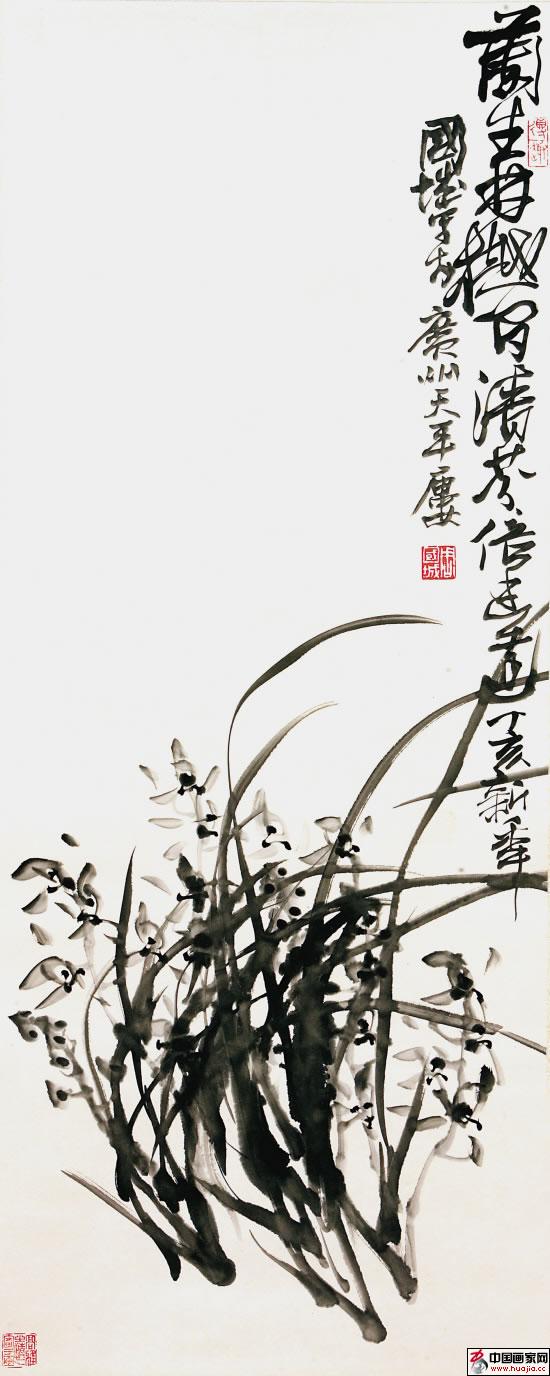 蘭生林樾間清芬倍 丁亥新年
國城寫於廣州天平廔
國城
中国画家网
www.huajia.cc